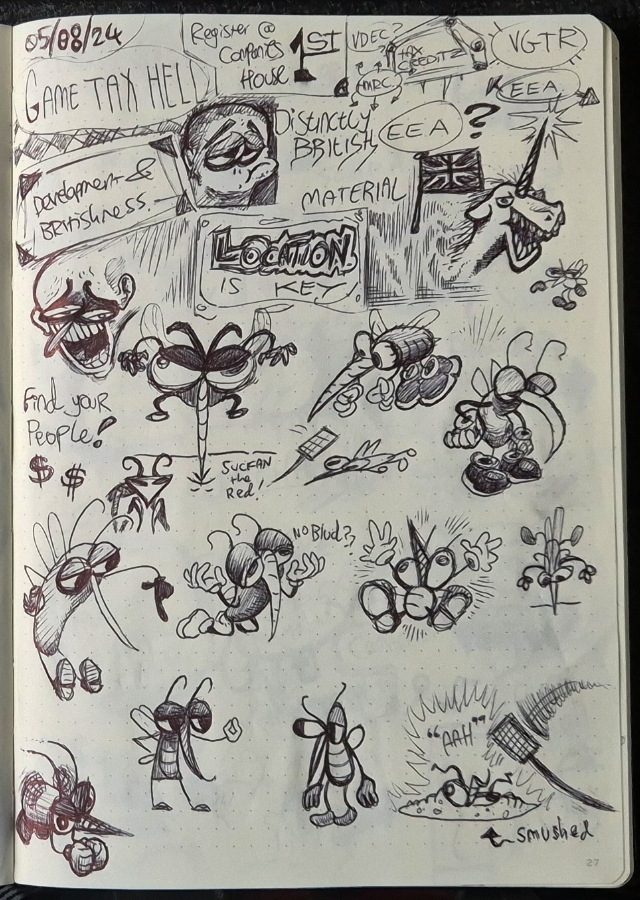 05/08/24
Register @
Companies
House
1ST
VDEC?
HMRC
TAX
CREDITZ
VGTR
EEA
GAME TAX HELL
Distinctly
BRITISH
EEA ?
MATERIAL
Development &
BRitishness
LOCATION
IS KEY
Find your
People!
$ $
SUCKAN
the
Red!
No Blud??
"AAH"
smushed
27